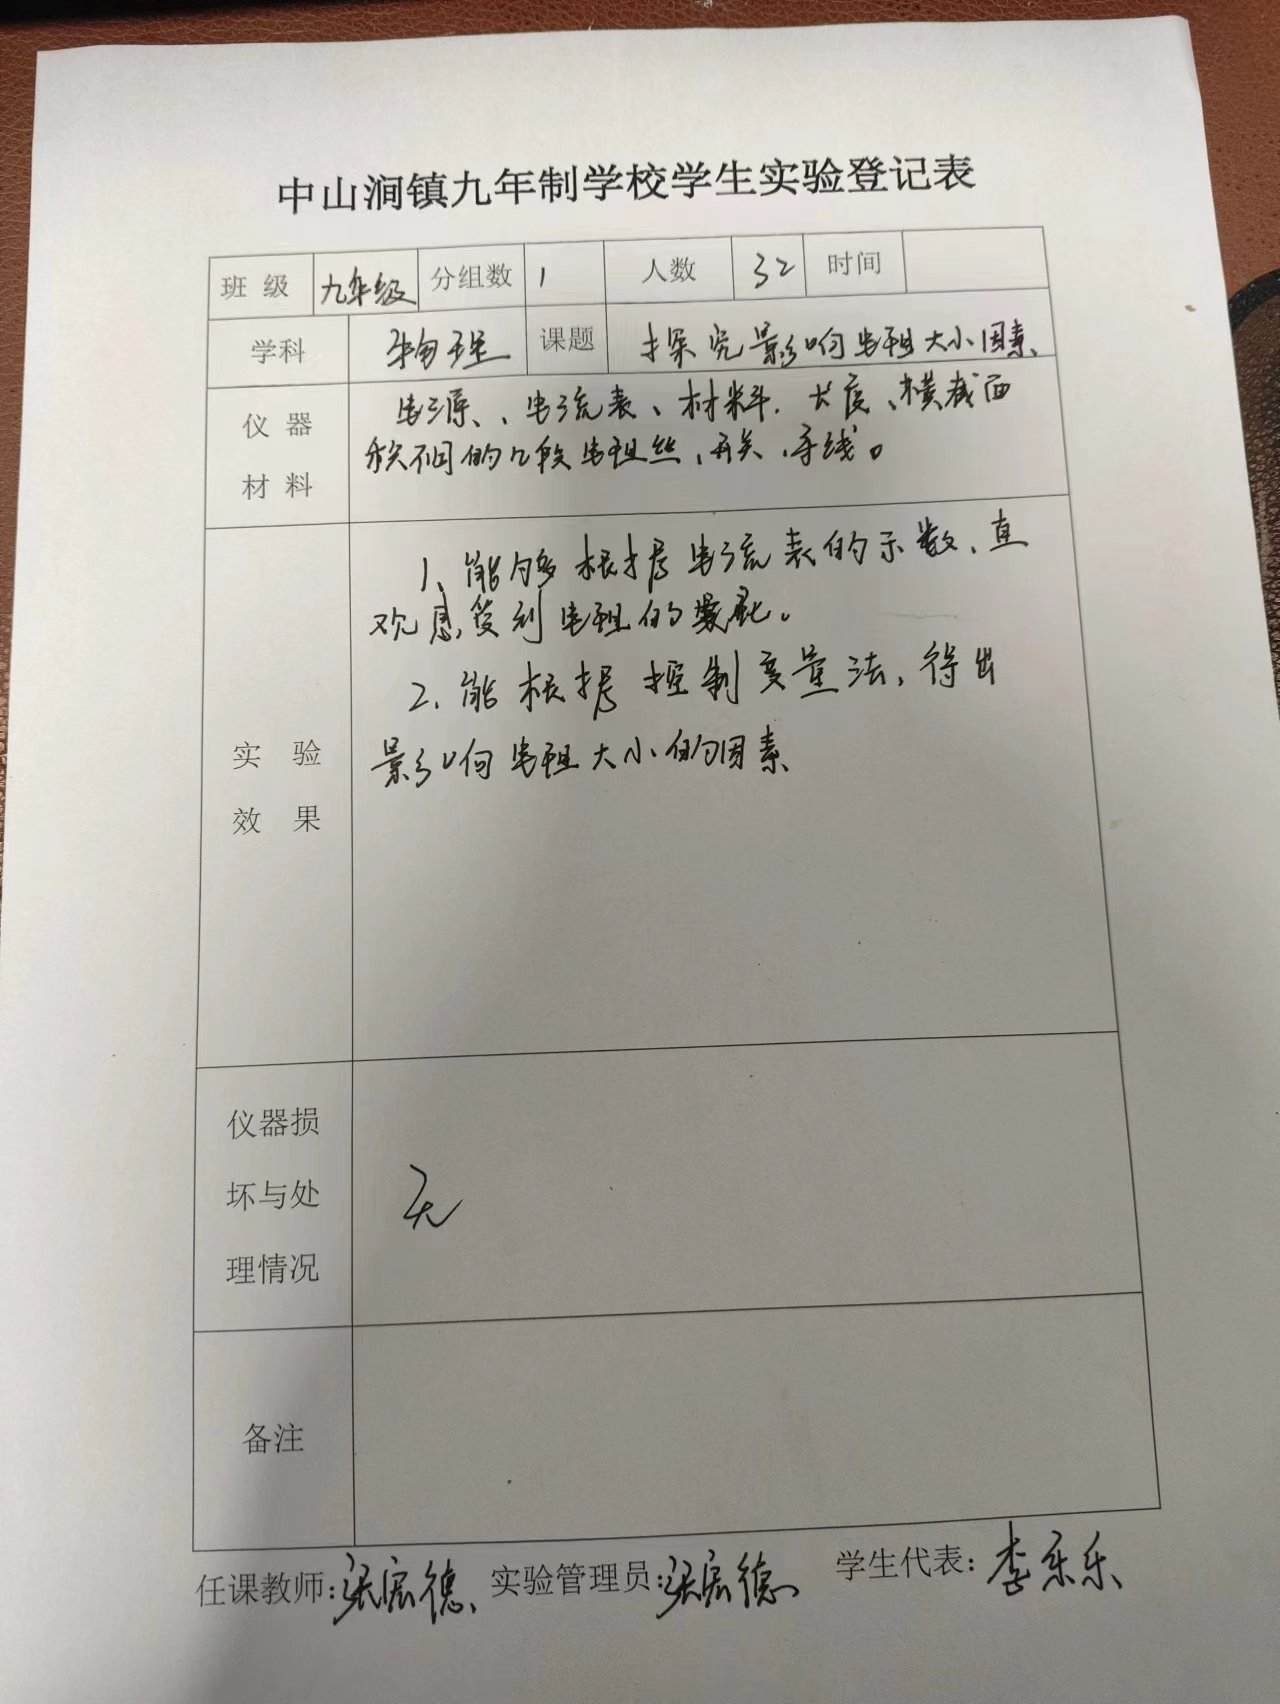 中山涧镇九年制学校学生实验登记表
班 级 九年级 分组数 1 人数 32 时间
学科 物理 课题 探究影响电阻大小因素
仪 器 电源、、电流表、材料、长度、横截面
材 料 积不同的几段电阻丝、开关、导线。
1、能够根据电流表的示数、直
观感受到电阻的变化。
2、能根据控制变量法,得出
影响电阻大小的因素
实 验
效 果
仪器损
坏与处
理情况
无
备注
任课教师:梁宏德 实验管理员:梁宏德 学生代表:李乐乐